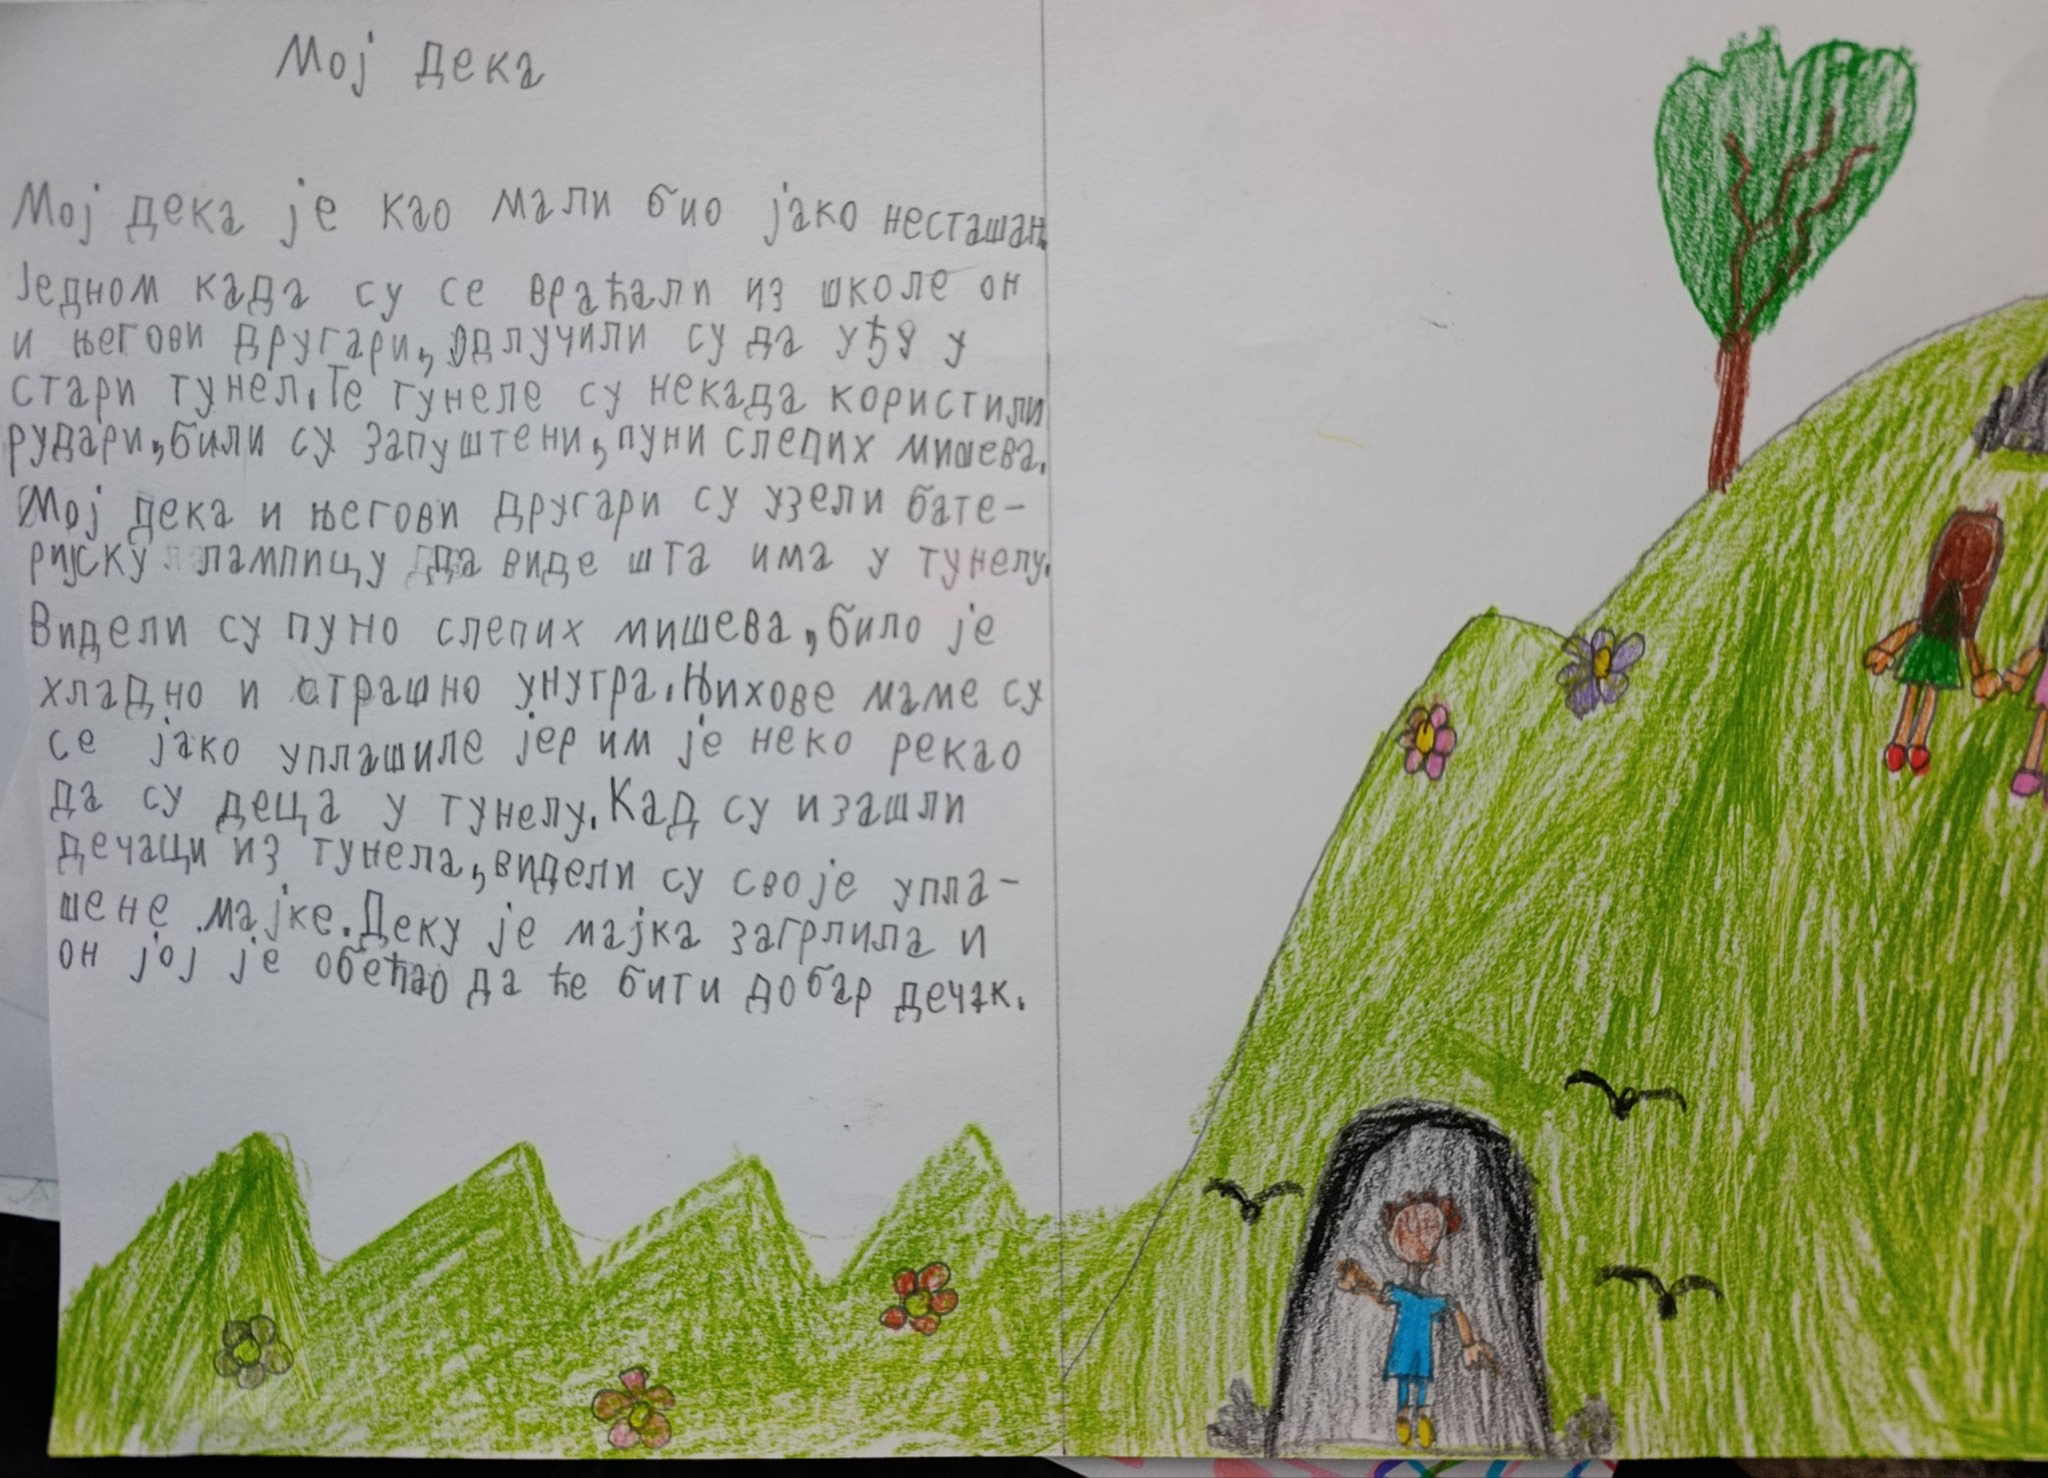 Мој дека
Мој дека је као мали био јако несташан.
Једном када су се враћали из школе он
и његови другари, одлучили су да уђу у
стари тунел. Те тунеле су некада користили
рудари, били су запуштени, пуни слепих мишева.
Мој дека и његови другари су узели бате-
ријску лампицу да виде шта има у тунелу.
Видели су пуно слепих мишева, било је
хладно и страшно унутра. Њихове маме су
се јако уплашиле јер им је неко рекао
да су деца у тунелу. Кад су изашли
дечаци из тунела, видели су своје упла-
шене мајке. Деку је мајка загрлила и
он јој је обећао да ће бити добар дечак.